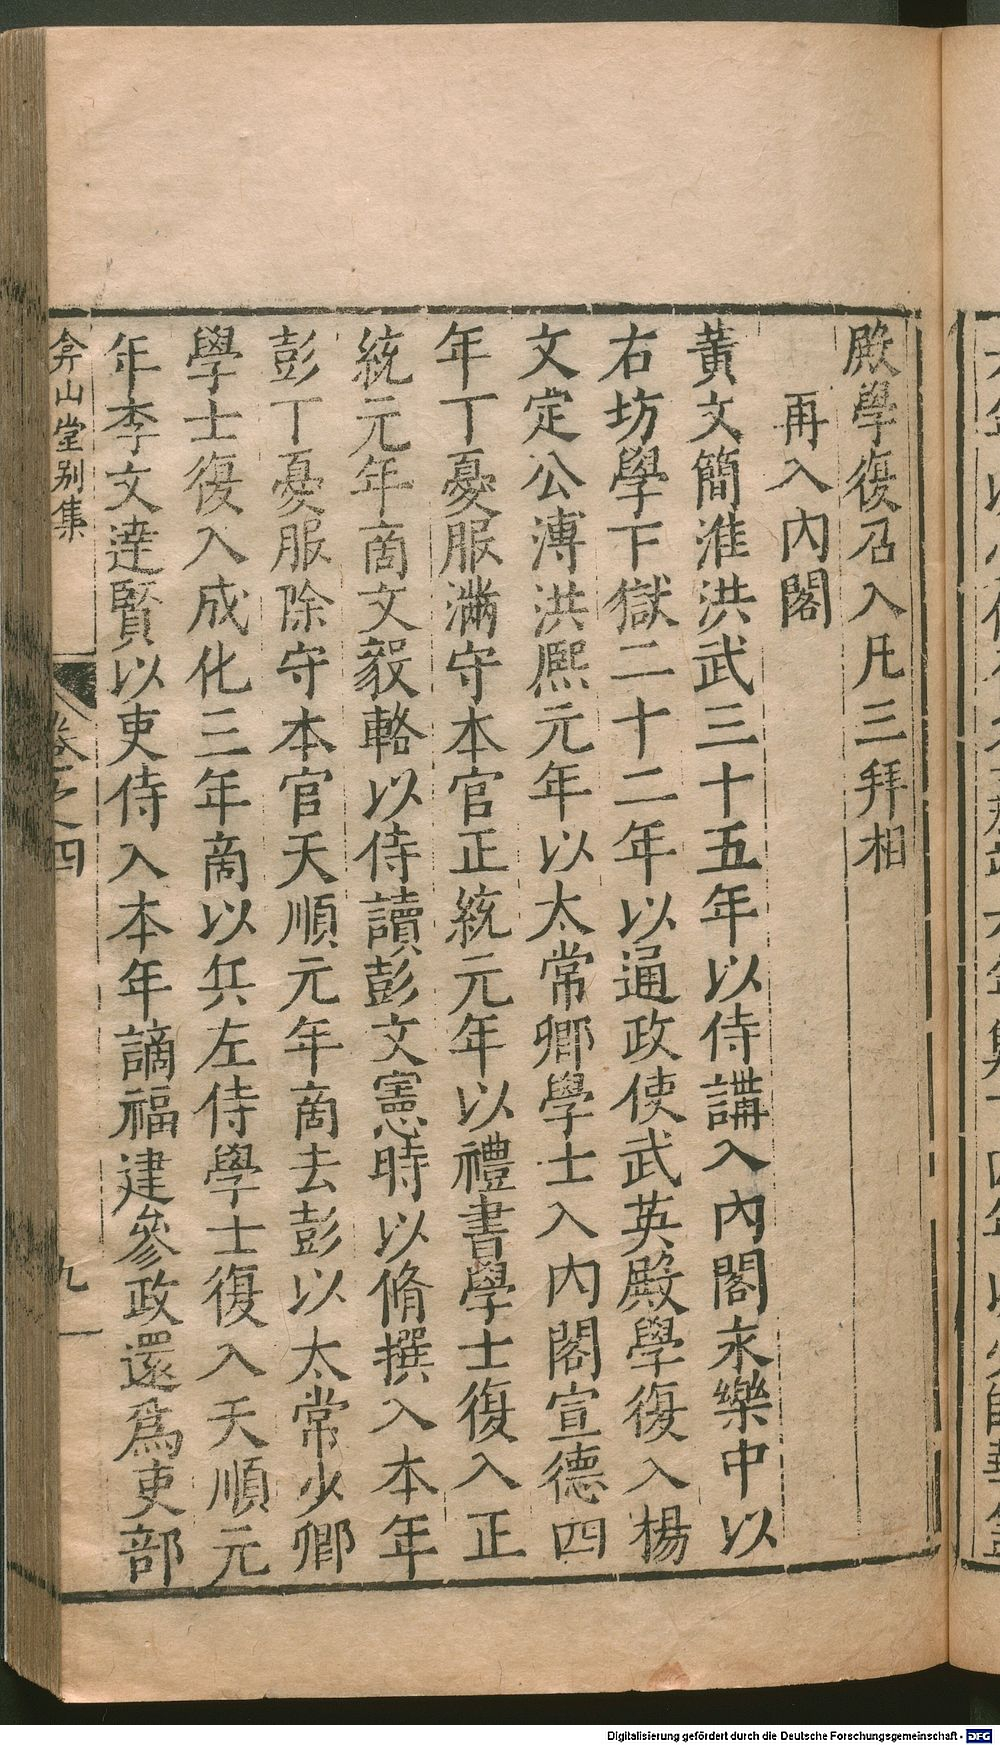 殿學復召入凡三拜相
再入內閣
黃文簡淮洪武三十五年以侍講入內閣永樂中以
右坊學下獄二十二年以通政使武英殿學復入楊
文定公溥洪熈元年以太常卿學士入內閣宣德四
年丁憂服滿守本官正統元年以禮書學士復入正
統元年商文毅輅以侍讀彭文憲時以脩撰入本年
彭丁憂服除守本官天順元年商去彭以太常少卿
學士復入成化三年商以兵左侍學士復入天順元
年李文達賢以吏侍入本年謫福建參政還爲吏部
弇山堂別集
卷之四
九
Digitalisierung gefördert durch die Deutsche Forschungsgemeinschaft - DFG